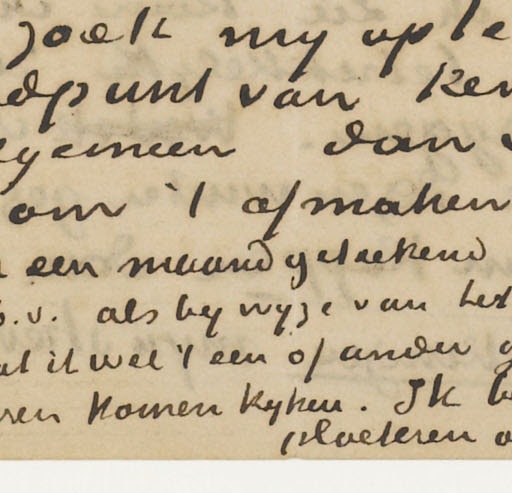 zoek my op te
dpunt van ken
gemeen dan
om 't afmaken
een maand geteekend
b.v. als by wyze van het
at ik wel 't een of ander g
ren komen kyken. Ik be
ploeteren o